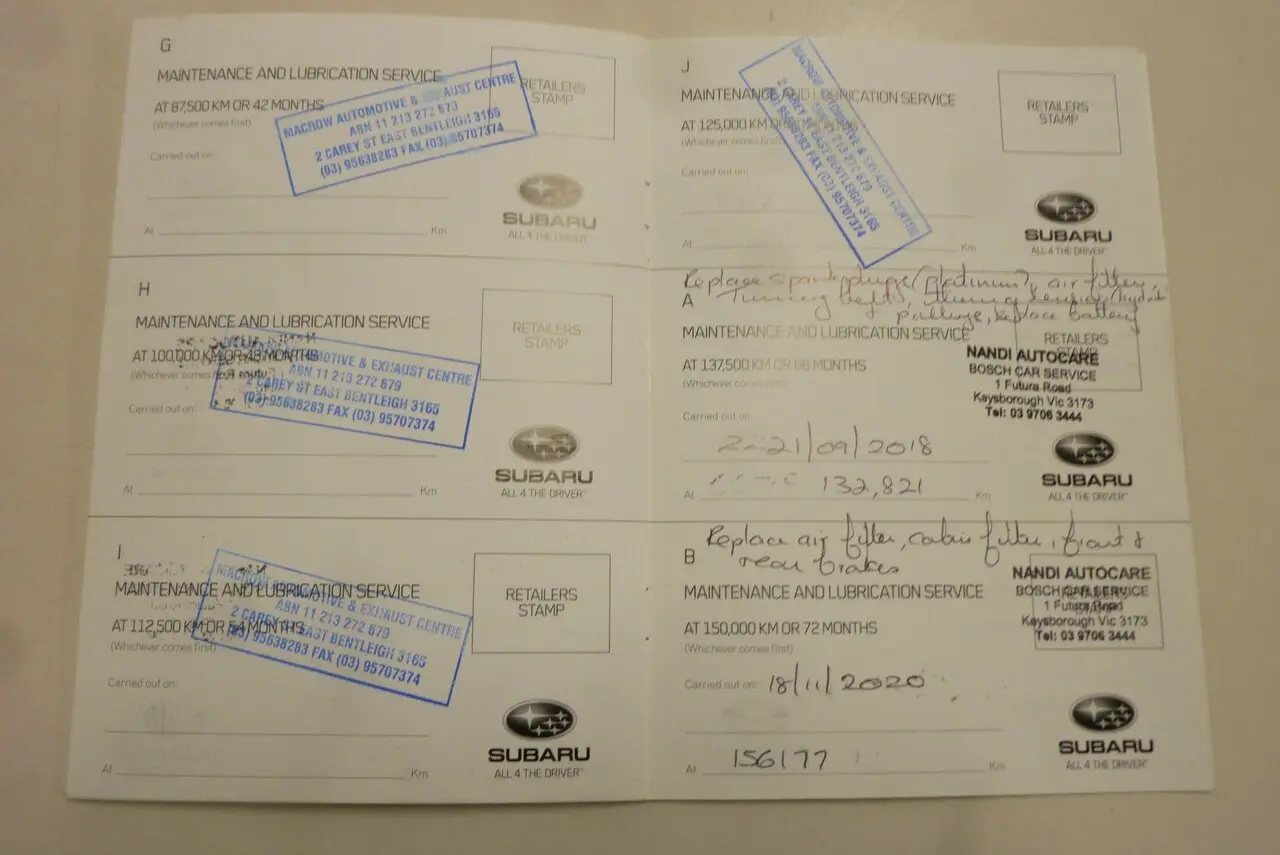 G
MAINTENANCE AND LUBRICATION SERVICE
AT 87,500 KM OR 42 MONTHS
(Whichever comes first)
Carried out on:
At Km
RETAILERS
STAMP
MACROW AUTOMOTIVE & EXHAUST CENTRE
ABN 11 213 272 679
2 CAREY ST EAST BENTLEIGH 3165
(03) 95638283 FAX (03) 95707374
SUBARU
ALL 4 THE DRIVER
H
MAINTENANCE AND LUBRICATION SERVICE
AT 100,000 KM OR 48 MONTHS
(Whichever comes first)
Carried out on:
At Km
RETAILERS
STAMP
AUTOMOTIVE & EXHAUST CENTRE
ABN 11 213 272 679
2 CAREY ST EAST BENTLEIGH 3165
(03) 95638283 FAX (03) 95707374
SUBARU
ALL 4 THE DRIVER
I
MAINTENANCE AND LUBRICATION SERVICE
AT 112,500 KM OR 54 MONTHS
(Whichever comes first)
Carried out on:
At Km
RETAILERS
STAMP
MACROW AUTOMOTIVE & EXHAUST CENTRE
ABN 11 213 272 679
2 CAREY ST EAST BENTLEIGH 3165
(03) 95638283 FAX (03) 95707374
SUBARU
ALL 4 THE DRIVER
J
MAINTENANCE AND LUBRICATION SERVICE
AT 125,000 KM
(Whichever comes first)
Carried out on:
At Km
RETAILERS
STAMP
MACROW AUTOMOTIVE & EXHAUST CENTRE
ABN 11 213 272 679
2 CAREY ST EAST BENTLEIGH 3165
(03) 95638283 FAX (03) 95707374
SUBARU
ALL 4 THE DRIVER
Replace sparkplugs (platinum), air filter,
A
Timing belt, timing tension
& pulleys, replace battery
MAINTENANCE AND LUBRICATION SERVICE
AT 137,500 KM OR 66 MONTHS
(Whichever comes first)
Carried out on:
21/09/2018
At 132,821 Km
RETAILERS
STAMP
NANDI AUTOCARE
BOSCH CAR SERVICE
1 Futura Road
Keysborough Vic 3173
Tel: 03 9706 3444
SUBARU
ALL 4 THE DRIVER
Replace air filter, cabin filter, front &
rear brakes
B
MAINTENANCE AND LUBRICATION SERVICE
AT 150,000 KM OR 72 MONTHS
(Whichever comes first)
Carried out on: 18/11/2020
At 156177 Km
NANDI AUTOCARE
BOSCH CAR SERVICE
1 Futura Road
Keysborough Vic 3173
Tel: 03 9706 3444
SUBARU
ALL 4 THE DRIVER